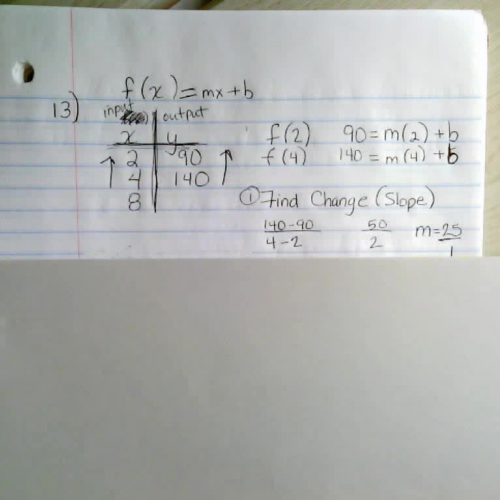 f(x) = mx + b
13) input output
x y
2 90
4 140
8
f(2) 90 = m(2) + b
f(4) 140 = m(4) + b
① Find Change (Slope)
140-90 / 4-2 50/2 m = 25/1